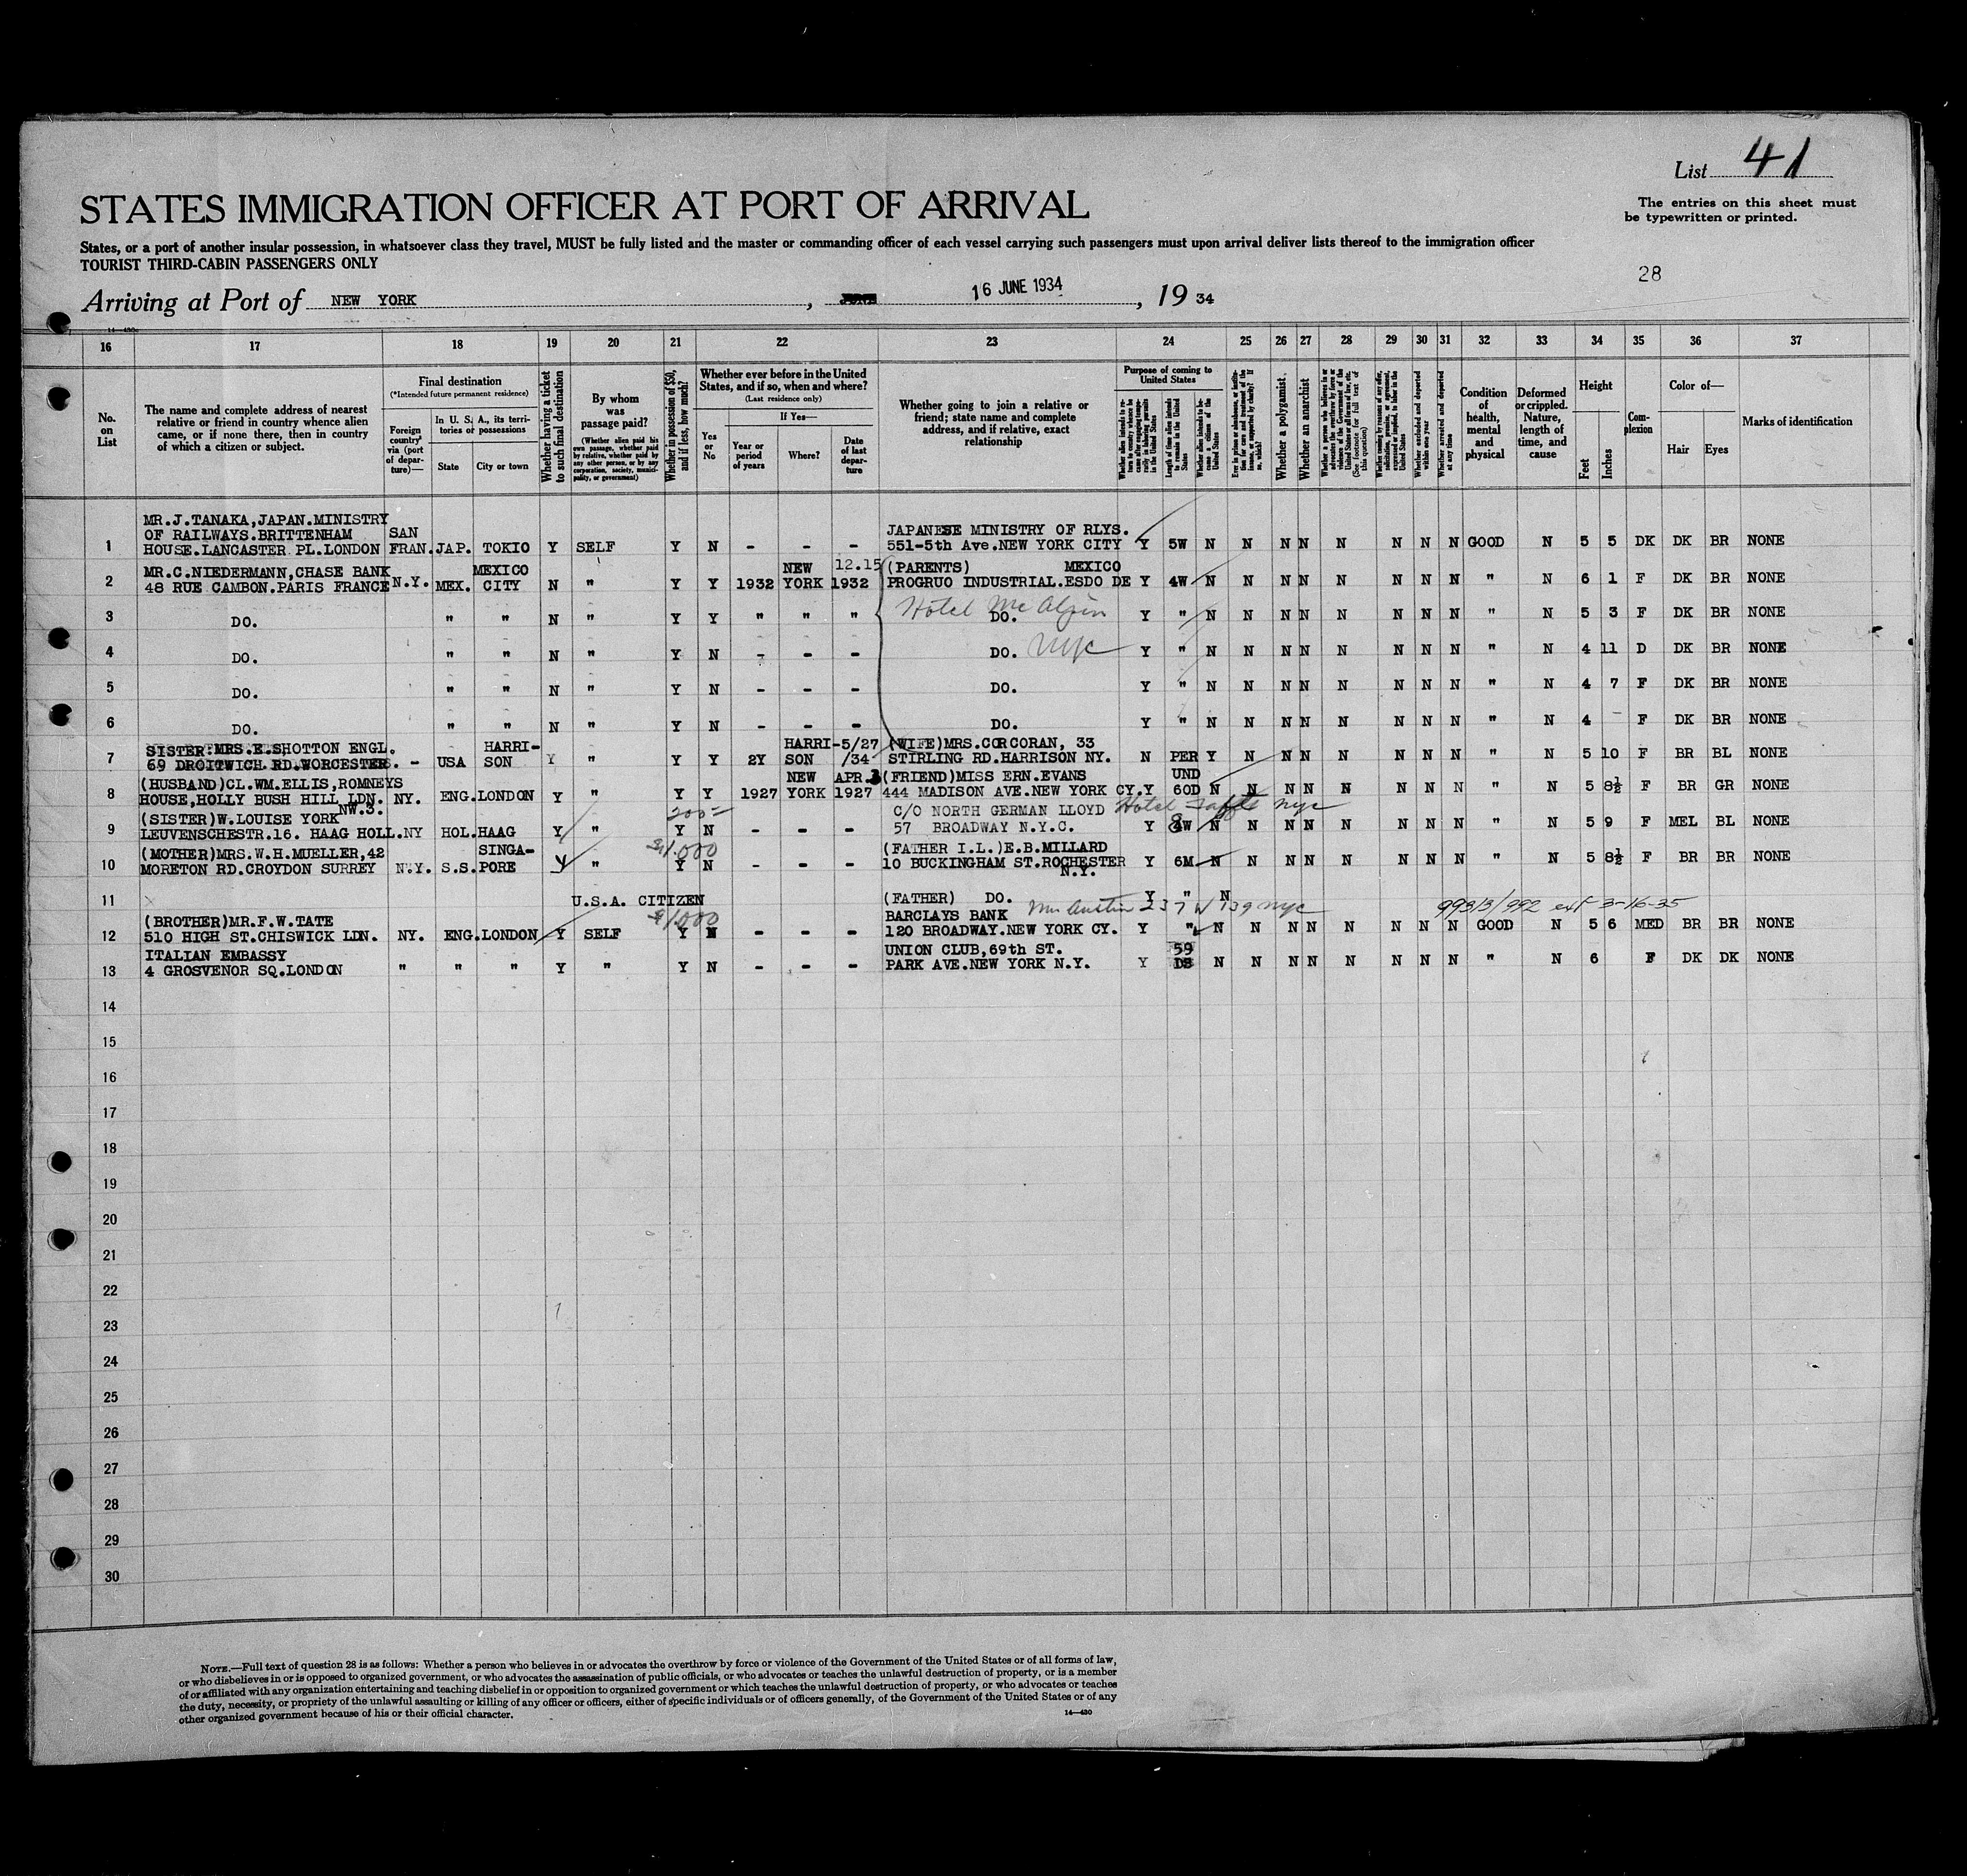 List 41
STATES IMMIGRATION OFFICER AT PORT OF ARRIVAL
The entries on this sheet must
be typewritten or printed.
States, or a port of another insular possession, in whatsoever class they travel, MUST be fully listed and the master or commanding officer of each vessel carrying such passengers must upon arrival deliver lists thereof to the immigration officer
TOURIST THIRD-CABIN PASSENGERS ONLY
28
Arriving at Port of NEW YORK, 16 JUNE 1934, 19 34
16 17 18 19 20 21 22 23 24 25 26 27 28 29 30 31 32 33 34 35 36 37
No. on List
The name and complete address of nearest relative or friend in country whence alien came, or if none there, then in country of which a citizen or subject.
Final destination
(*Intended future permanent residence)
Foreign country via (port of departure)—
In U. S. A., its territories or possessions
State City or town
Whether having a ticket to such final destination
By whom was passage paid?
(Whether alien paid his own passage, whether paid by relative, whether paid by any other person, or by any corporation, society, municipality, or government)
Whether in possession of $50, and if less, how much?
Whether ever before in the United States, and if so, when and where?
(Last residence only)
Yes or No
If Yes—
Year or period of years
Where?
Date of last departure
Whether going to join a relative or friend; state name and complete address, and if relative, exact relationship
Purpose of coming to United States
Length of time alien intends to remain in the United States
Whether alien intends to become a citizen of the United States
Whether a polygamist
Whether an anarchist
(See footnote for full text of this question)
Whether arrested and deported at any time
Condition of health, mental and physical
Deformed or crippled. Nature, length of time, and cause
Height
Feet Inches
Complexion
Color of—
Hair Eyes
Marks of identification
1 MR.J.TANAKA,JAPAN.MINISTRY OF RAILWAYS.BRITTENHAM HOUSE.LANCASTER PL.LONDON SAN FRAN. JAP. TOKIO Y SELF Y N - - - JAPANESE MINISTRY OF RLYS. 551-5th Ave.NEW YORK CITY Y 5W N N N N N N N N GOOD N 5 5 DK DK BR NONE
2 MR.C.NIEDERMANN,CHASE BANK 48 RUE CAMBON.PARIS FRANCE N.Y. MEX. MEXICO CITY N " Y Y 1932 NEW YORK 12.15 1932 (PARENTS) MEXICO PROGRUO INDUSTRIAL.ESDO DE Y 4W N N N N N N N N " N 6 1 F DK BR NONE
3 DO. " " N " Y Y " " " Hotel Mc Alpin DO. Y " N N N N N N N N " N 5 3 F DK BR NONE
4 DO. " " N " Y N - - - DO. NYC Y " N N N N N N N N " N 4 11 D DK BR NONE
5 DO. " " N " Y N - - - DO. Y " N N N N N N N N " N 4 7 F DK BR NONE
6 DO. " " N " Y N - - - DO. Y " N N N N N N N N " N 4 - F DK BR NONE
7 SISTER:MRS.E.SHOTTON ENGL. 69 DROITWICH RD.WORCESTER. - USA HARRI-SON Y " Y Y 2Y HARRI-SON 5/27/34 (WIFE)MRS.CORCORAN, 33 STIRLING RD.HARRISON NY. N PER Y N N N N N N N " N 5 10 F BR BL NONE
8 (HUSBAND)CL.WM.ELLIS,ROMNEYS HOUSE,HOLLY BUSH HILL LDN. NW.3. NY. ENG. LONDON Y " Y Y 1927 NEW YORK APR. 1927 (FRIEND)MISS ERN.EVANS 444 MADISON AVE.NEW YORK CY. Y UND 60D N N N N N N N N " N 5 8½ F BR GR NONE
9 (SISTER)W.LOUISE YORK LEUVENSCHESTR.16. HAAG HOLL. NY HOL. HAAG Y " 200= Y N - - - C/O NORTH GERMAN LLOYD 57 BROADWAY N.Y.C. Hotel Taft NYC Y 8W N N N N N N N N " N 5 9 F MEL BL NONE
10 (MOTHER)MRS.W.H.MUELLER,42 MORETON RD.CROYDON SURREY N.Y. S.S. SINGA-PORE Y " $1,000 Y N - - - (FATHER I.L.)E.B.MILLARD 10 BUCKINGHAM ST.ROCHESTER N.Y. Y 6M N N N N N N N N " N 5 8½ F BR BR NONE
11 U.S.A. CITIZEN (FATHER) DO. Y " N
12 (BROTHER)MR.F.W.TATE 510 HIGH ST.CHISWICK LDN. NY. ENG. LONDON Y SELF $1,000 Y N - - - BARCLAYS BANK 120 BROADWAY.NEW YORK CY. Mrs Austin 237 W 139 NYC Y " N N N N N N N N 99313/992 ext 3-16-35 GOOD N 5 6 MED BR BR NONE
13 ITALIAN EMBASSY 4 GROSVENOR SQ.LONDON " " " Y " Y N - - - UNION CLUB,69th ST. PARK AVE.NEW YORK N.Y. Y 59 DS N N N N N N N N " N 6 F DK DK NONE
14
15
16
17
18
19
20
21
22
23
24
25
26
27
28
29
30
NOTE.—Full text of question 28 is as follows: Whether a person who believes in or advocates the overthrow by force or violence of the Government of the United States or of all forms of law,
or who disbelieves in or is opposed to organized government, or who advocates the assassination of public officials, or who advocates or teaches the unlawful destruction of property, or is a member
of or affiliated with any organization entertaining and teaching disbelief in or opposition to organized government or which teaches the unlawful destruction of property, or who advocates or teaches
the duty, necessity, or propriety of the unlawful assaulting or killing of any officer or officers, either of specific individuals or of officers generally, of the Government of the United States or of any
other organized government because of his or their official character.
14—430